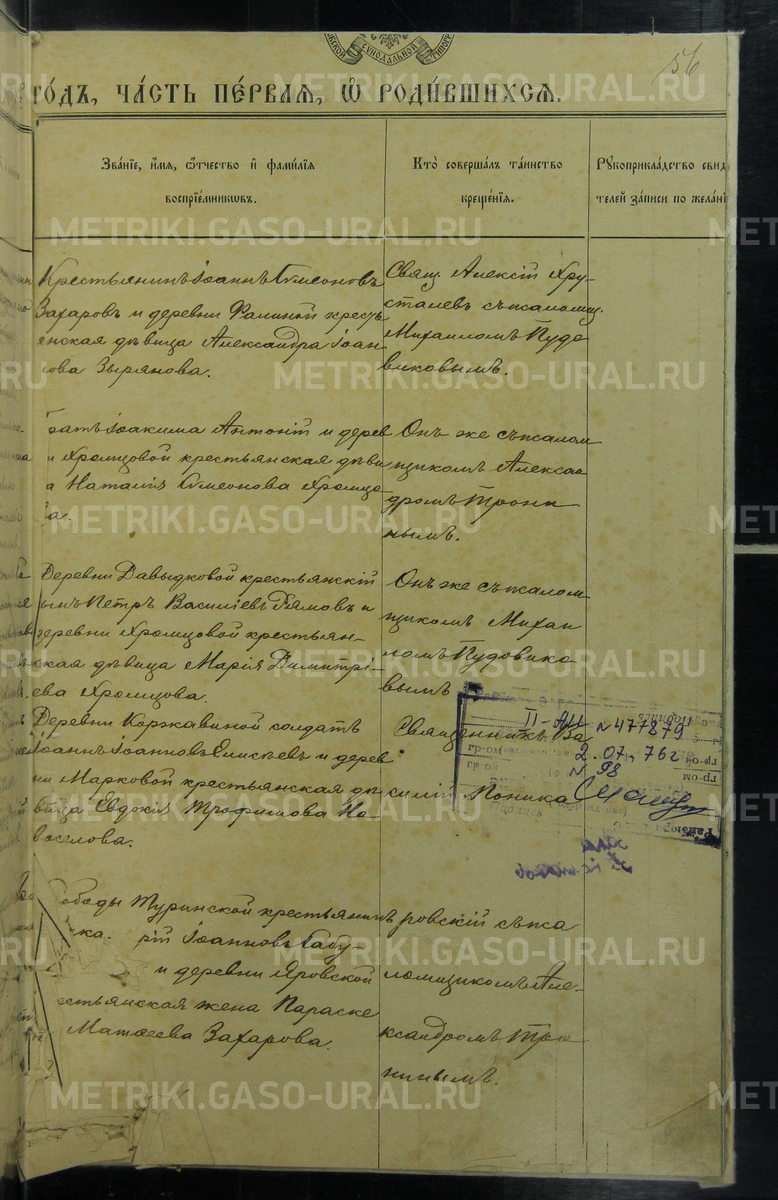 56
го́дъ, ча́сть пе́рваѧ, ѡ҆ роди́вшихсѧ.
Зва́нїе, и҆́мѧ, ѻ҆́тчество и҆ фами́лїѧ
воспрїе́мникѡвъ.
Кто̀ соверша́лъ та́инство
креще́нїѧ.
Рꙋкоприкла́дство свид
телей за́писи по жела́нї
Крестьянинъ Іоаннъ Симеоновъ
Захаровъ и деревни Фалиной кресть
янская дѣвица Александра Іоан
нова Зырянова.
Свящ. Алексій Хру-
сталевъ съ псаломщ.
Михаиломъ Пудо
виковымъ.
братъ Іоакима Антоній и дерев
и Хромцовой крестьянская дѣви
а Наталія Симеонова Хромцо
ва.
Онъ же съ псалом
щикомъ Алексан
дромъ Трони
нымъ.
Деревни Давыдковой крестьянскій
сынъ Петръ Василіевъ Рямовъ и
деревни Хромцовой крестьян-
ская дѣвица Марія Димитрі-
ева Хромцова.
Онъ же съ псалом
щикомъ Михаи
ломъ Пудовико
вымъ
Деревни Коржавиной солдатъ
Іоаннъ Іоанновъ Елисѣевъ и дерев
ни Марковой крестьянская дѣ
вица Евдокія Трофимова Но-
воселова.
Священникъ Ва
силій Поника
II-АИ № 477879
2.07.76г
№ 98
Слободы Туринской крестьянинъ
рій Іоанновъ Кабу-
и деревни Яровской
естьянская жена Параске
Матѳеева Захарова.
ровскій съ пса
ломщикомъ Але-
ксандромъ Тро
нинымъ.
METRIKI.GASO-URAL.RU